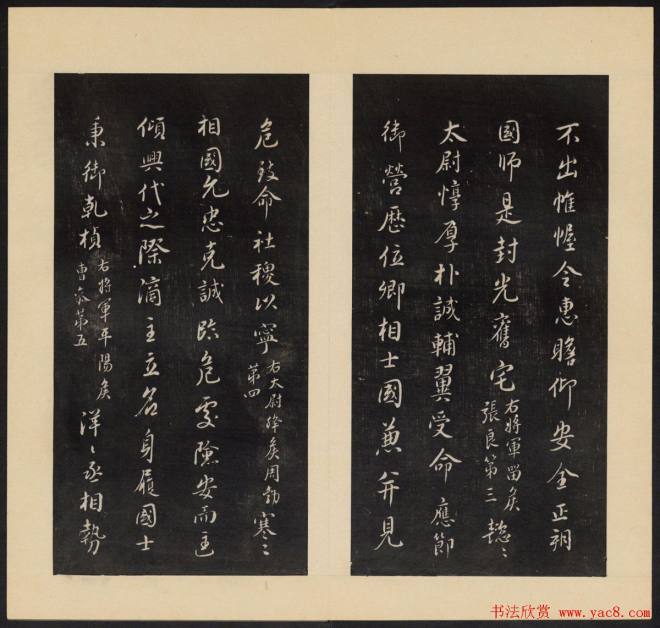 不出帷幄令惠瞻仰安全正朔
國師是封光舊宅右將軍留矦張良第三懿〻
太尉惇厚朴誠輔翼受命應節
御營歷位卿相士國兼并見
危致命社稷以寧右太尉絳矦周勃第四蹇〻
相國允忠克誠臨危處險安而匡
傾興代之際濟主立名身履國士
秉御乾楨右將軍平陽矦曹參第五洋〻丞相勢
书法欣赏 www.yac8.com